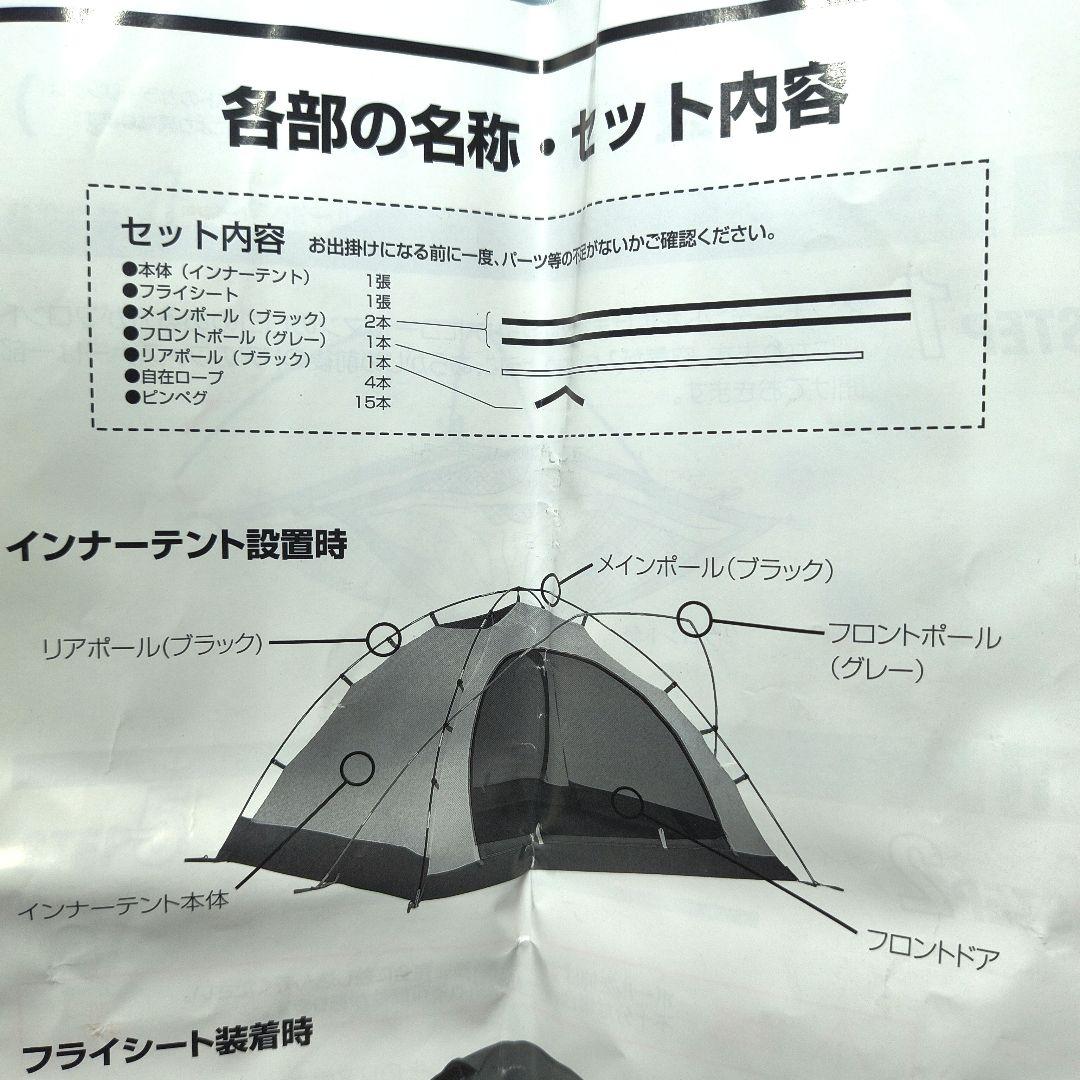 各部の名称・セット内容
セット内容 お出掛けになる前に一度、パーツ等の不足がないかご確認ください。
●本体（インナーテント） 1張
●フライシート 1張
●メインポール（ブラック） 2本
●フロントポール（グレー） 1本
●リアポール（ブラック） 1本
●自在ロープ 4本
●ピンペグ 15本
インナーテント設置時
メインポール(ブラック)
リアポール(ブラック)
フロントポール
(グレー)
インナーテント本体
フロントドア
フライシート装着時